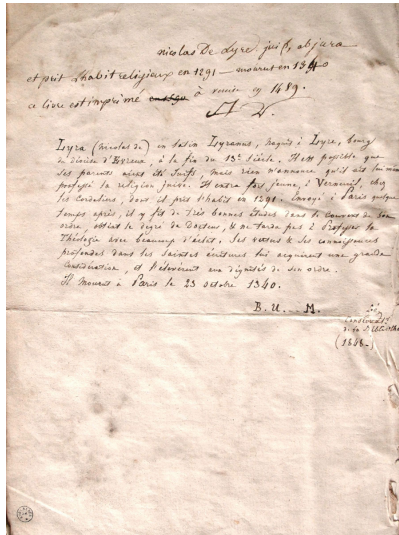 nicolas De Lyre, juif, abjura
et prit l'habit religieux en 1291 — mourut en 1340
ce livre est imprimé à venise en 1489.
Lyra (Nicolas de) en latin Lyranus, naquit à Lyre, bourg
du diocèse d'Evreux, à la fin du 13e siècle. Il est possible que
ses parents aient été Juifs, mais rien n'annonce qu'il ait lui même
professé la religion juive. Il entra fort jeune, à Verneuil, chez
les Cordeliers, dont il prit l'habit en 1291. Envoyé à Paris quelque
temps après, il y fit de très bonnes études dans le couvent de son
ordre, obtint le degré de Docteur, & ne tarda pas à Professer la
Théologie avec beaucoup d'éclat. Ses vertus & ses connaissances
profondes dans les saintes écritures lui acquirent une grande
considération, et l'élevèrent aux dignités de son ordre.
Il mourut à Paris le 23 octobre 1340.
B. U. — M.
de la
(1848-)